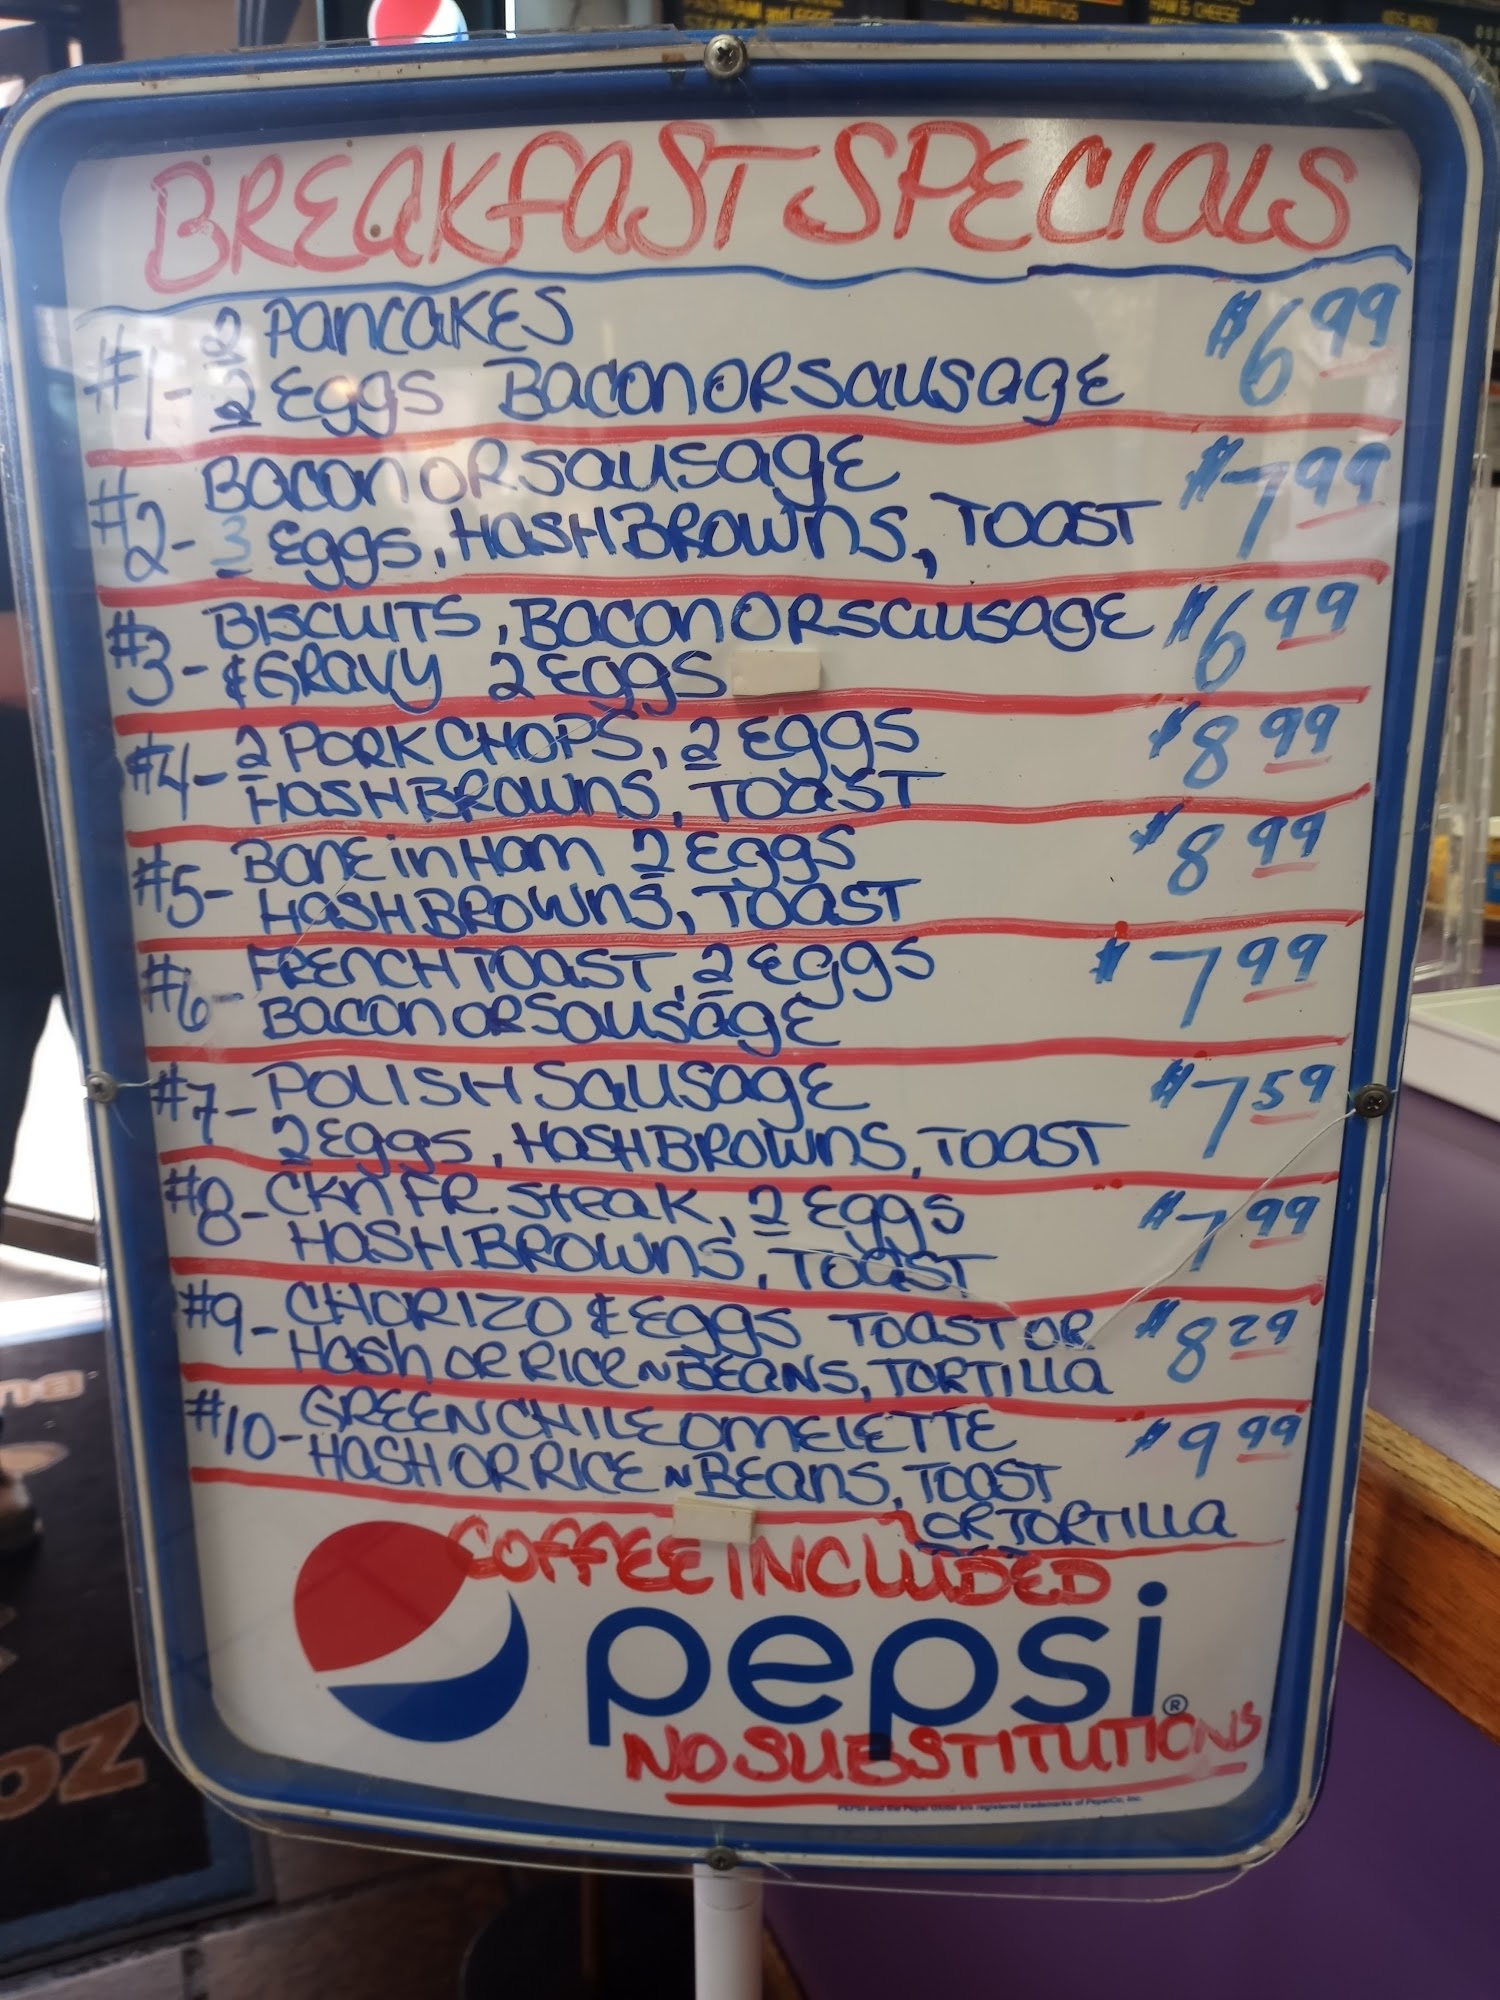 HAM & CHEESE
BREAKFAST SPECIALS
#1- 2 PANCAKES $6.99
2 EGGS BACON OR SAUSAGE
#2- BACON OR SAUSAGE $7.99
3 EGGS, HASHBROWNS, TOAST
#3- BISCUITS, BACON OR SAUSAGE $6.99
& GRAVY 2 EGGS
#4- 2 PORK CHOPS, 2 EGGS $8.99
HASHBROWNS, TOAST
#5- BONE in HAM 2 EGGS $8.99
HASHBROWNS, TOAST
#6- FRENCH TOAST, 2 EGGS $7.99
BACON OR SAUSAGE
#7- POLISH SAUSAGE $7.59
2 EGGS, HASHBROWNS, TOAST
#8- CKN FR STEAK, 2 EGGS $7.99
HASHBROWNS, TOAST
#9- CHORIZO & EGGS TOAST OR $8.29
HASH OR RICE N BEANS, TORTILLA
#10- GREEN CHILE OMELETTE $9.99
HASH OR RICE N BEANS, TOAST
OR TORTILLA
COFFEE INCLUDED
pepsi®
NO SUBSTITUTIONS
PEPSI and the Pepsi Globe are registered trademarks of PepsiCo, Inc.